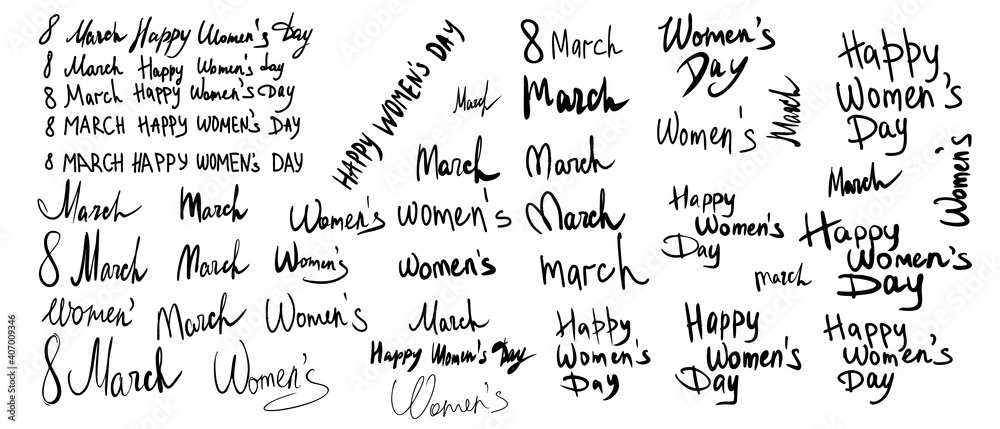 8 March Happy Women's Day
8 March Happy Women's day
8 March Happy Women's Day
8 MARCH HAPPY WOMEN'S DAY
8 MARCH HAPPY WOMEN'S DAY
March
March
8 March
March
Women's
Women'
March
Women's
8 March
Women's
HAPPY WOMEN'S DAY
Women's
March
March
women's
women's
March
Happy Women's Day
Women's
8 March
March
March
March
march
Happy
Women's
Day
Women's
Day
Women's
March
Happy
Women's
Day
march
Happy
Women's
Day
Happy
Women's
Day
March
Women's
Happy
Women's
Day
Happy
Women's
Day
Adobe Stock | #407009346
Adobe Stock